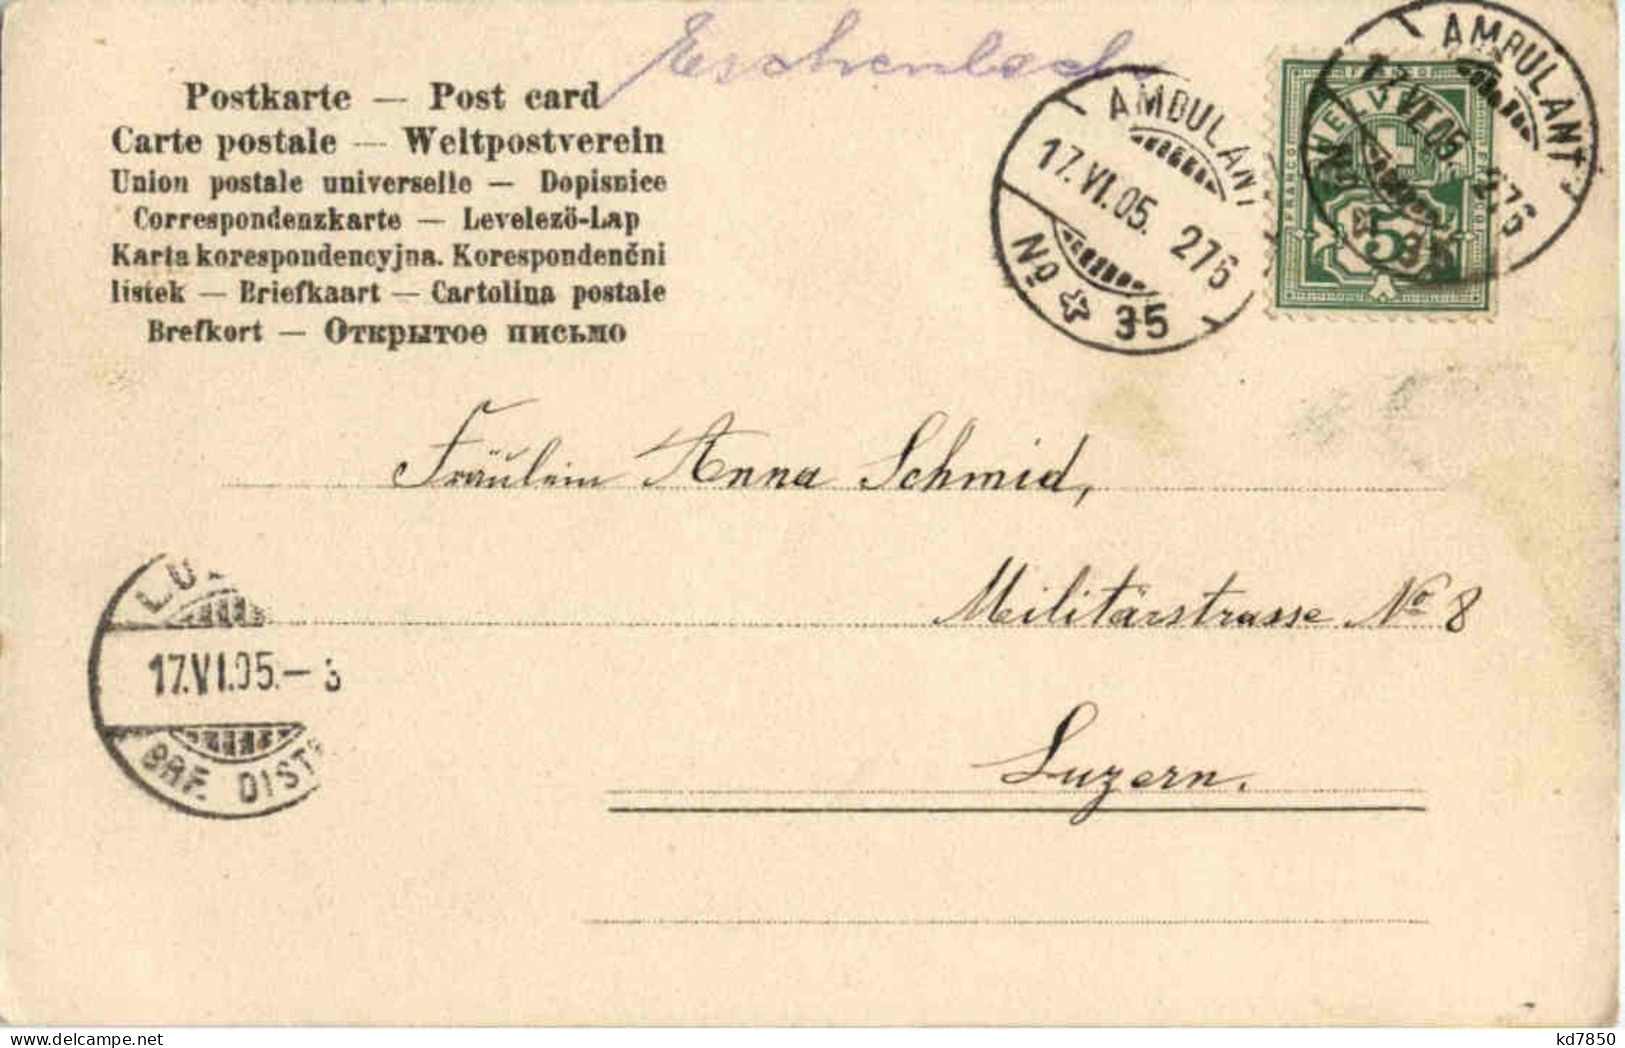 Eschenbach
Postkarte — Post card
Carte postale — Weltpostverein
Union postale universelle — Dopisnice
Correspondenzkarte — Levelező-Lap
Karta korespondencyjna. Korespondenční
listek — Briefkaart — Cartolina postale
Brefkort — Открытое письмо
AMBULANT
17.VI.05. 276
No 35
AMBULANT
17.VI.05. 276
No 35
FRANCO
HELVETIA
5
Fräulein Anna Schmid,
Militärstrasse No 8
Luzern.
17.VI.05.–
BRF. DIST
kd7850